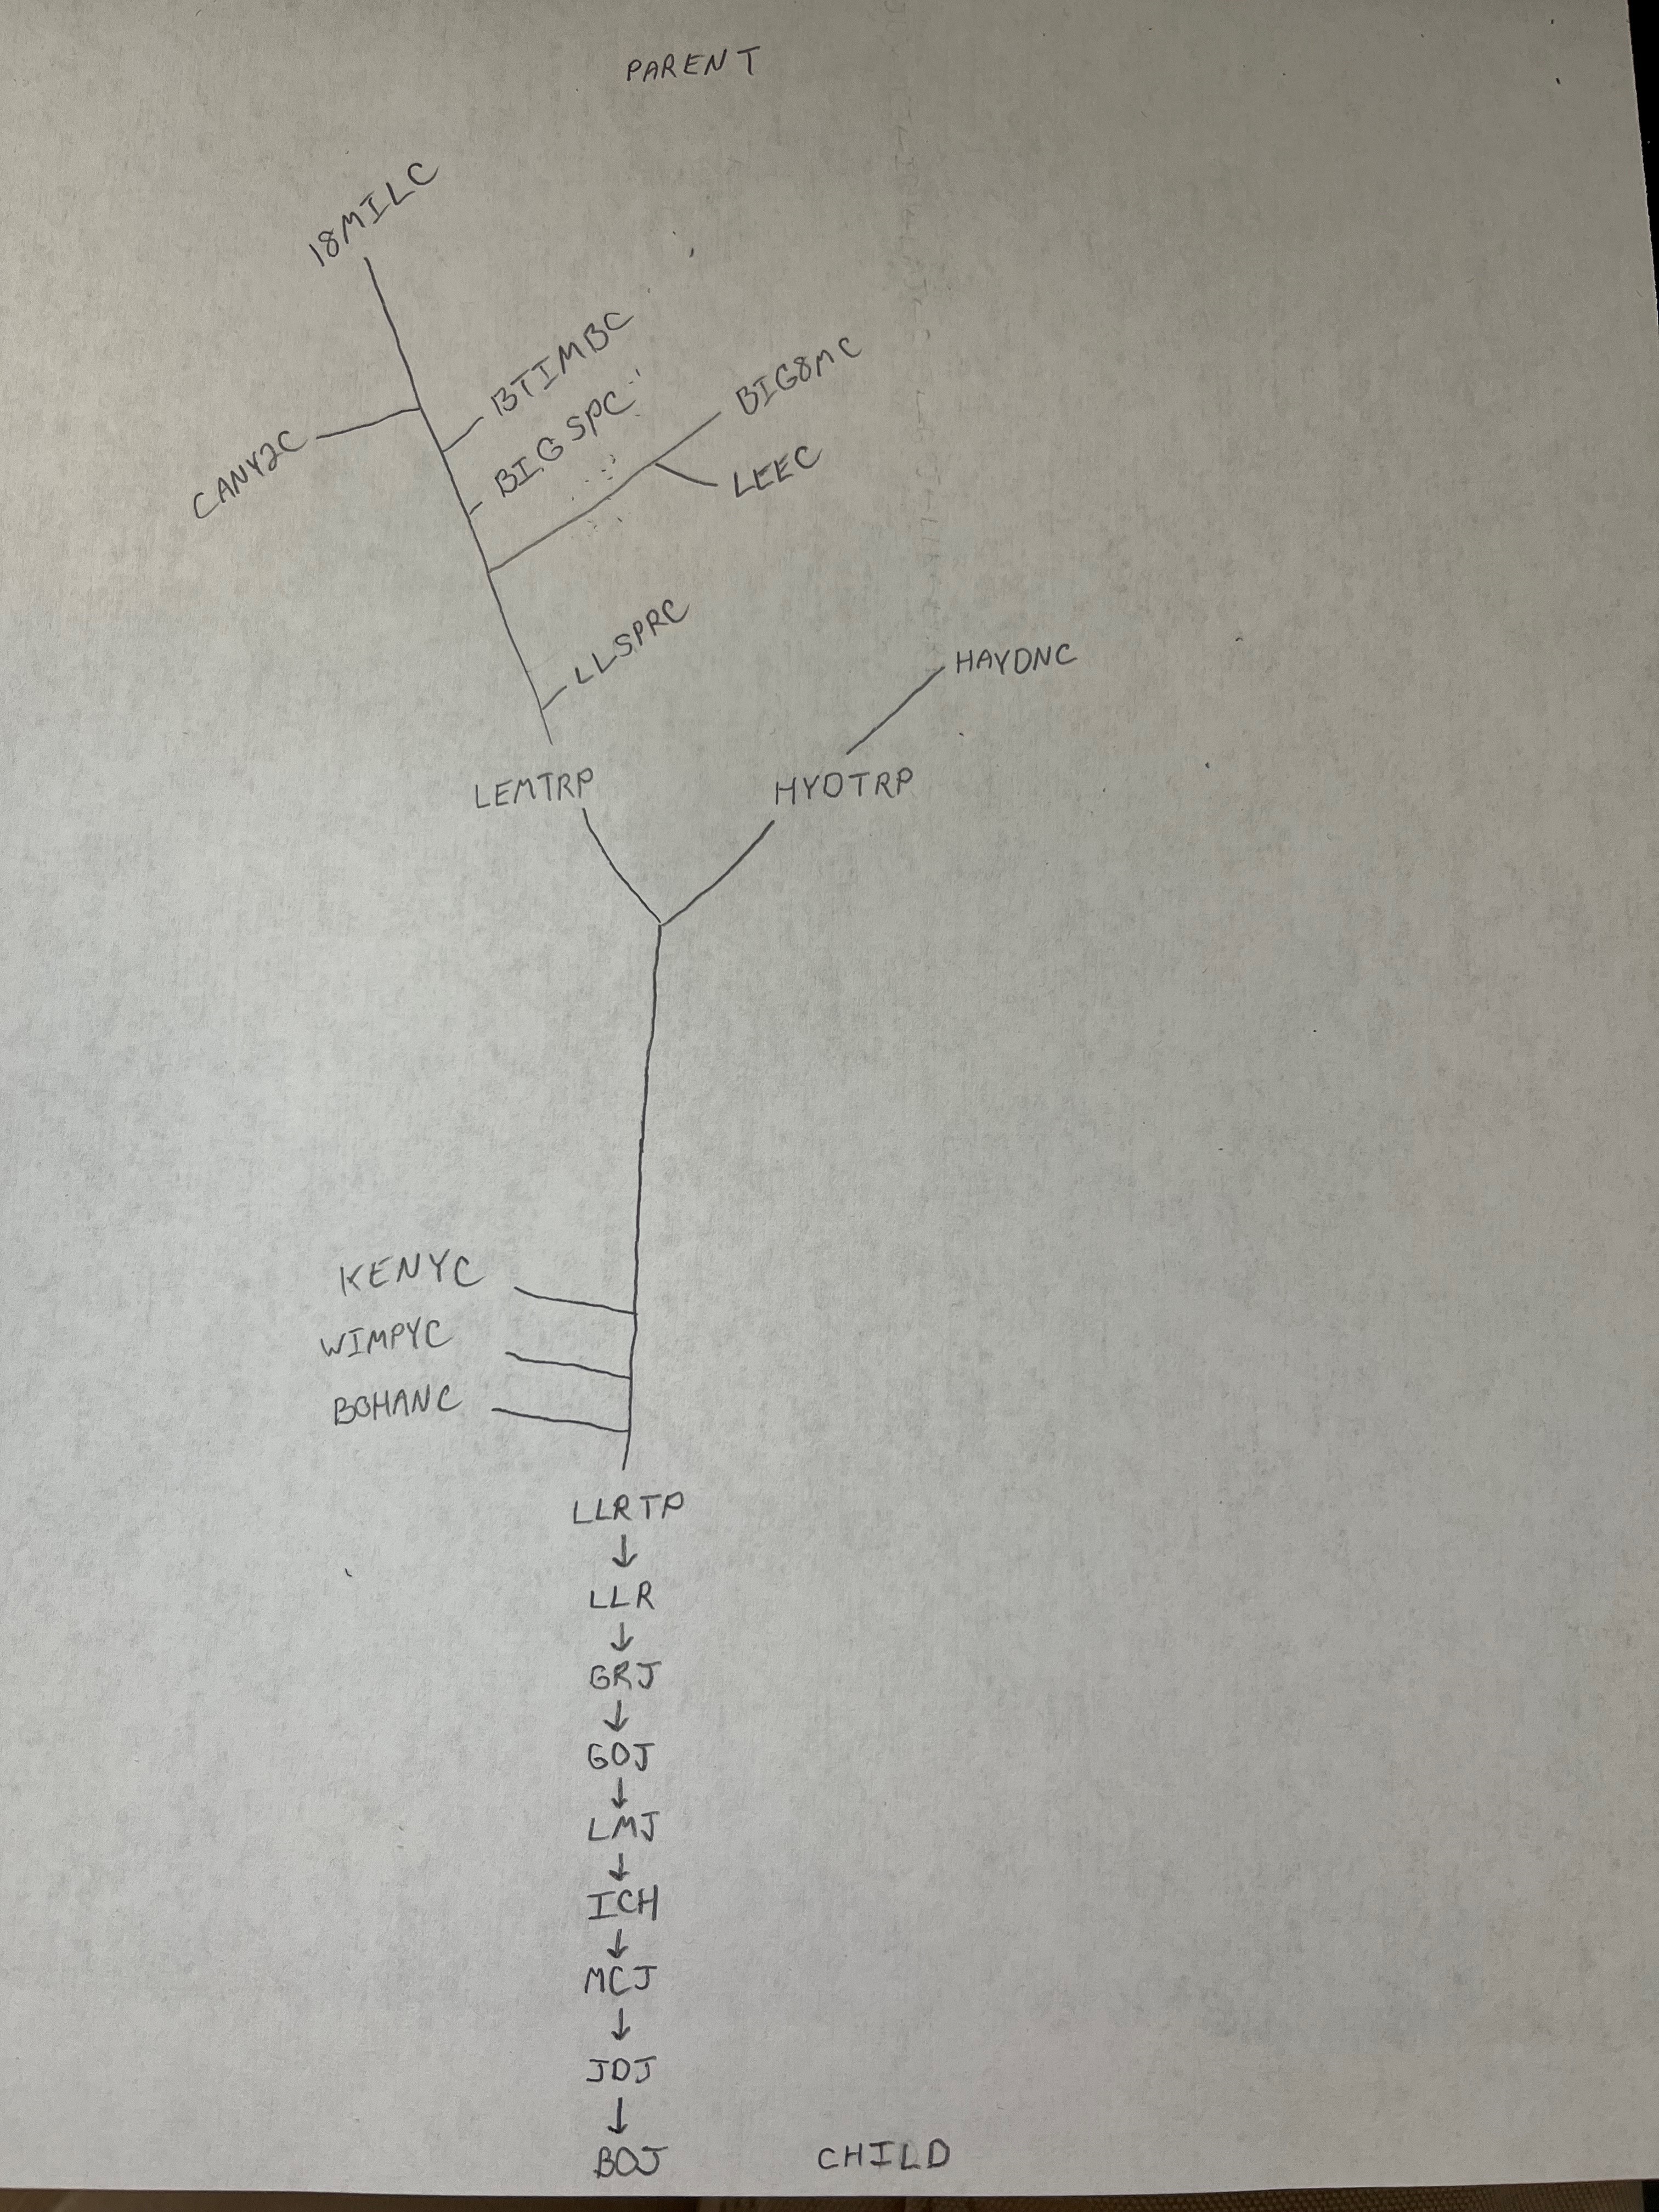 PARENT
18MILC
BTIMBC
BIG8MC
BIGSPC
CANY2C
LEEC
LLSPRC
HAYDNC
LEMTRP
HYDTRP
KENYC
WIMPYC
BOHANC
LLRTP
LLR
GRJ
GOJ
LMJ
ICH
MCJ
JDJ
BOJ
CHILD